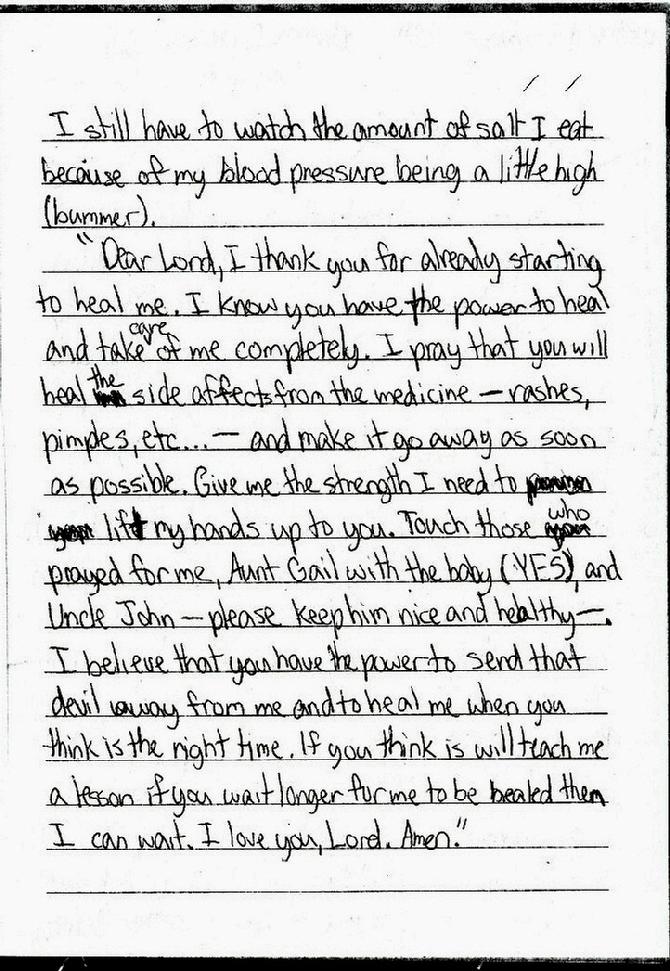 I still have to watch the amount of salt I eat
because of my blood pressure being a little high
(bummer).
"Dear Lord, I thank you for already starting
to heal me. I know you have the power to heal
and take care of me completely. I pray that you will
heal the side affects from the medicine — rashes,
pimples, etc... — and make it go away as soon
as possible. Give me the strength I need to
lift my hands up to you. Touch those who
prayed for me, Aunt Gail with the baby (YES), and
Uncle John — please keep him nice and healthy —.
I believe that you have the power to send that
devil away from me and to heal me when you
think is the right time. If you think is will teach me
a lesson if you wait longer for me to be healed them
I can wait. I love you, Lord. Amen."